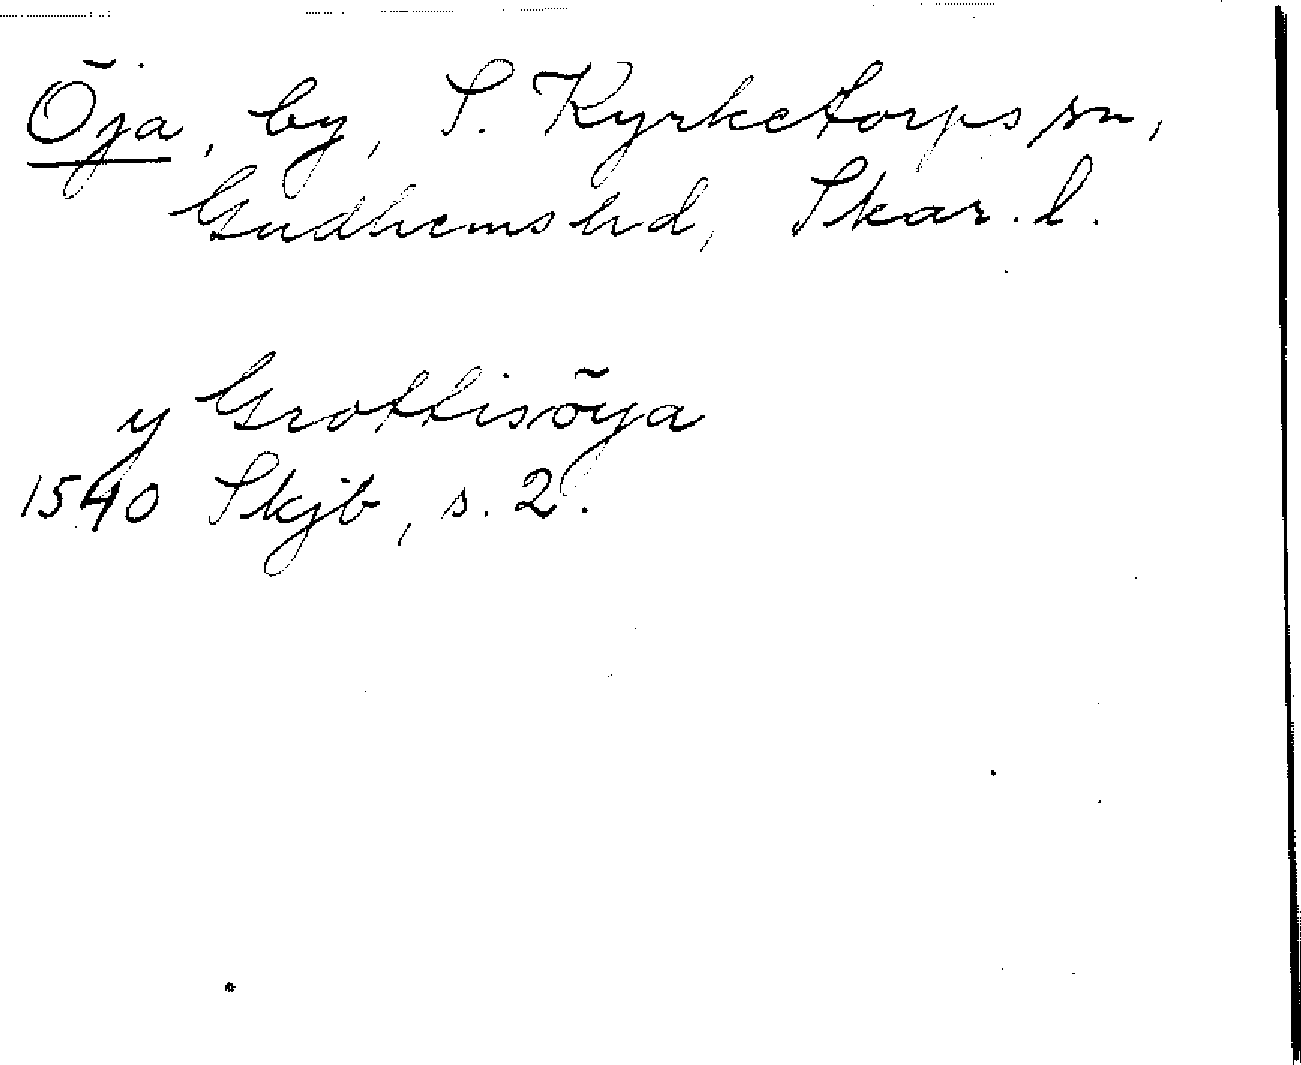 Öja, by, S. Kyrketorps sn,
Gudhems hd, Skar. l.
y Grottisöya
1540 Skjb, s. 2.